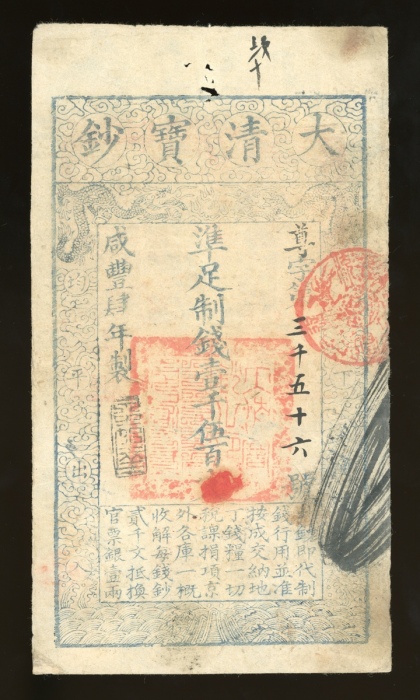 大清寶鈔
尊字第三千五十六號
準足制錢壹千伍百
咸豐肆年製
均平出入
鈔即代制
錢行用並准
按成交納地
丁錢糧一切
稅課捐項京
外各庫一概
收解每錢鈔
貳千文抵換
官票銀壹兩